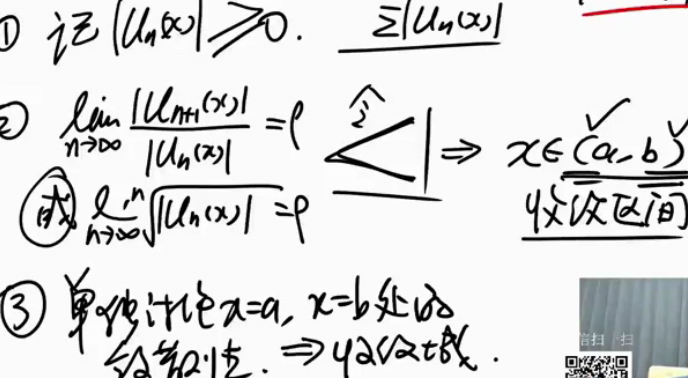 ① 记 |Uₙ(x)| ≥ 0. Σ|Uₙ(x)|
② lim n→∞ |Uₙ₊₁(x)| / |Uₙ(x)| = ρ 令 < 1 ⇒ x∈(a, b)
或 lim n→∞ ⁿ√|Uₙ(x)| = ρ 收敛区间
③ 单独讨论 x=a, x=b 处的
敛散性. ⇒ 收敛域.
扫 扫